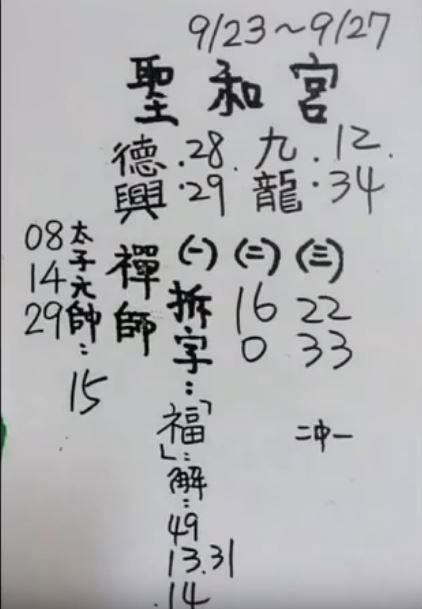 9/23~9/27
聖和宮
德興 .28 .29
九龍 .12. .34
太子元帥：15
08
14
29
禪師
(一) 拆字：「福」：解：49
13.31
.14
(二) 16
0
(三) 22
33
二中一